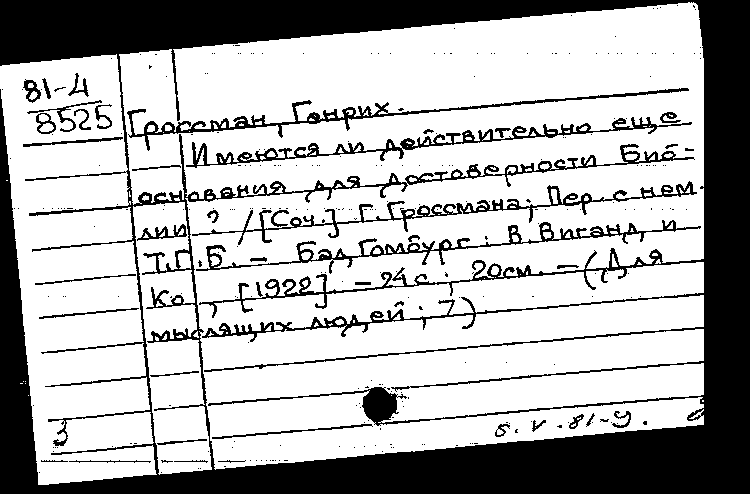 81-4
8525
Гроссман, Генрих.
Имеются ли действительно еще
основания для достоверности Биб=
лии ? / [Соч.] Г. Гроссмана; Пер. с нем.
Т.Г.Б. – Бад Гомбург : В. Виганд и
Ко , [1922] – 24 с ; 20 см. – (Для
мыслящих людей ; 7)
3
5.V.81-У.